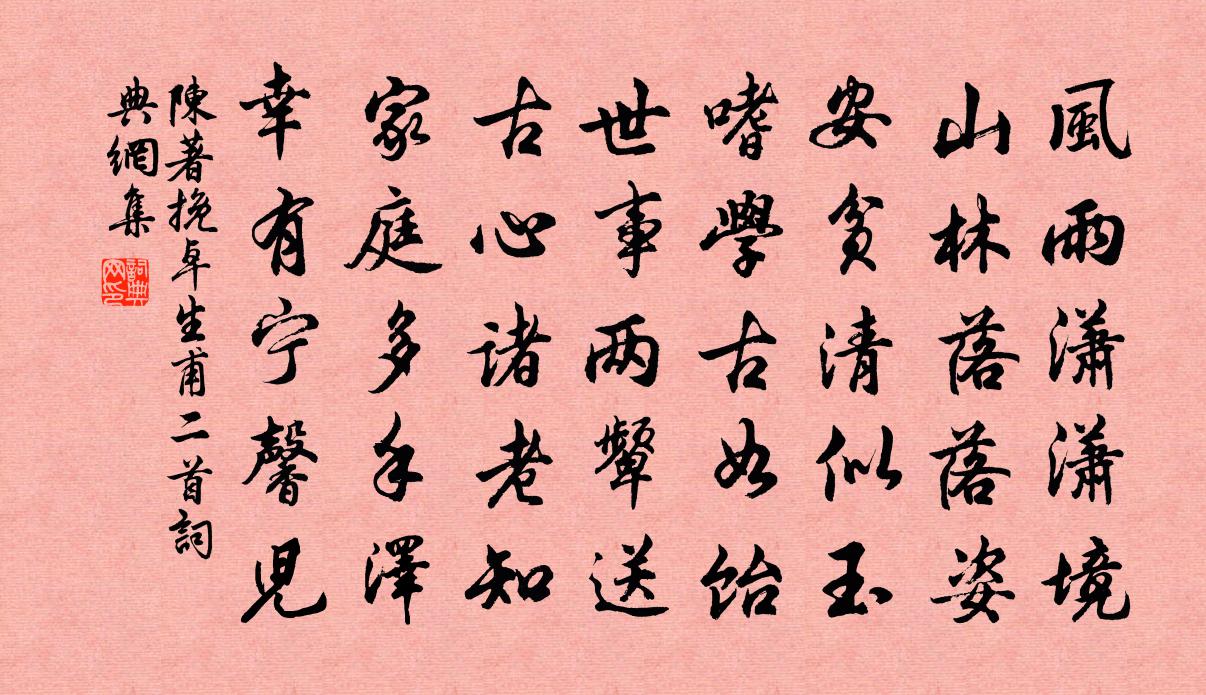 風雨瀟瀟境
山林落落姿
安貧清似玉
嗜學古如飴
世事两顰送
古心諸老知
家庭多手澤
幸有宁馨児
陳著挽卓生甫二首詞
典網集
詞典
网印